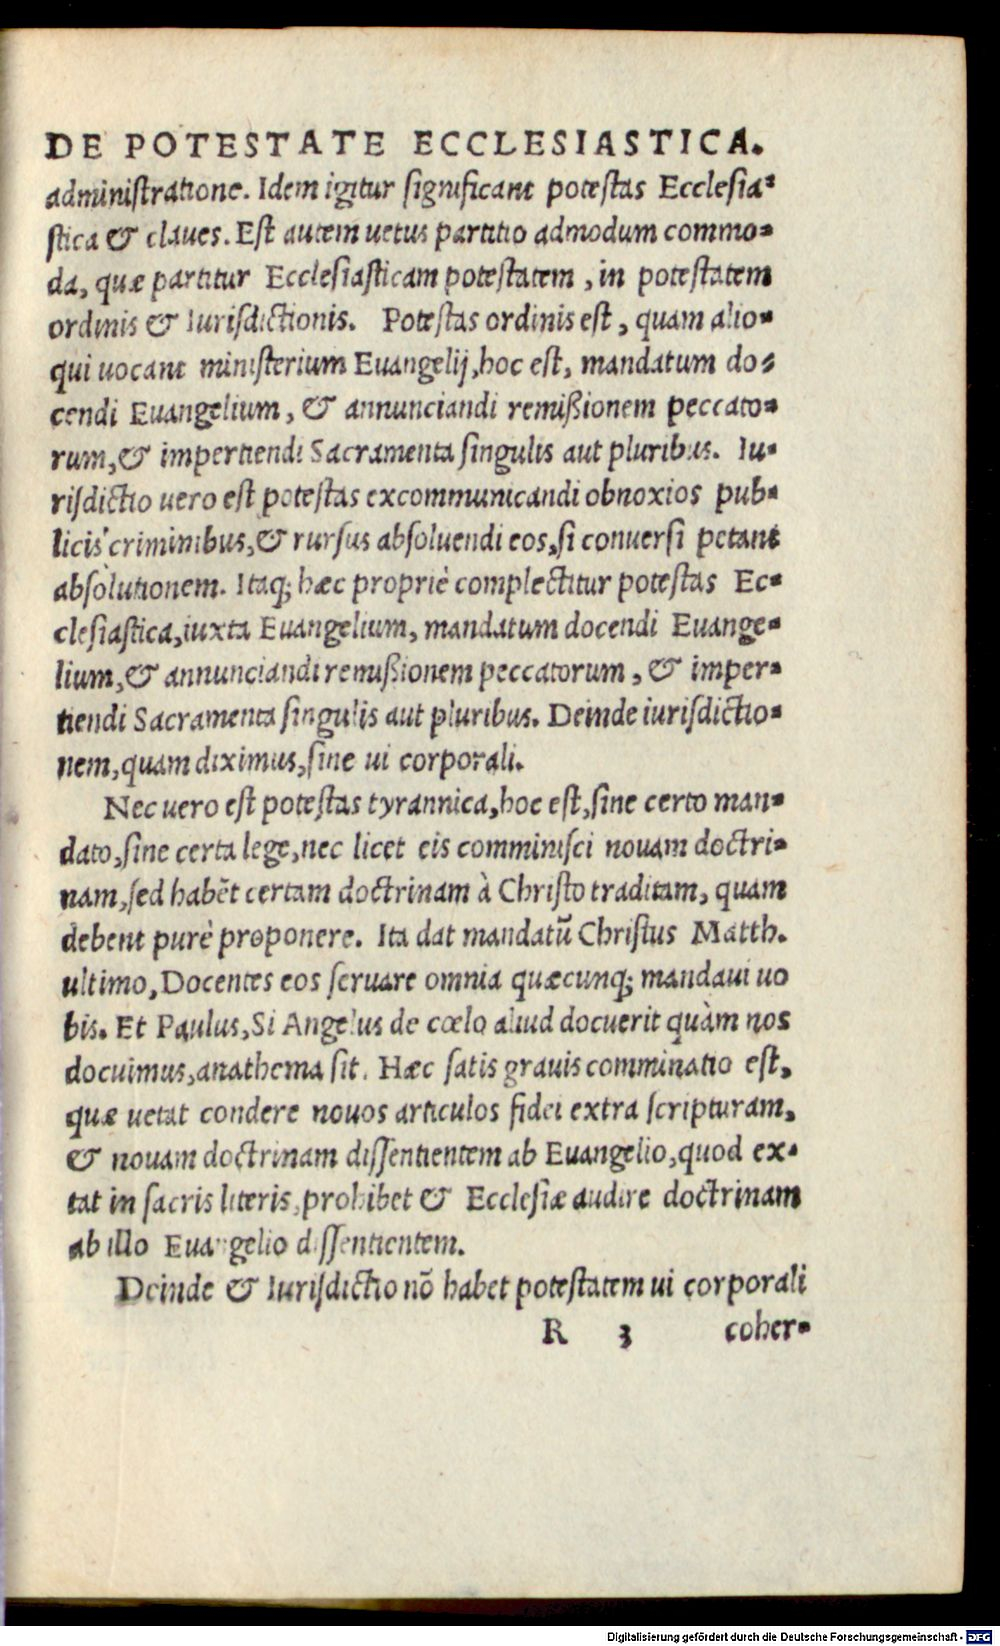 DE POTESTATE ECCLESIASTICA.
administratione. Idem igitur significant potestas Ecclesia-
stica & claues. Est autem uetus partitio admodum commo-
da, quæ partitur Ecclesiasticam potestatem, in potestatem
ordinis & Iurisdictionis. Potestas ordinis est, quam alio-
qui uocant ministerium Euangelij, hoc est, mandatum do-
cendi Euangelium, & annunciandi remißionem peccato-
rum, & impertiendi Sacramenta singulis aut pluribus. Iu-
risdictio uero est potestas excommunicandi obnoxios pub-
licis criminibus, & rursus absoluendi eos, si conuersi petant
absòlutionem. Itaq; hæc propriè complectitur potestas Ec-
clesiastica, iuxta Euangelium, mandatum docendi Euange-
lium, & annunciandi remißionem peccatorum, & imper-
tiendi Sacramenta singulis aut pluribus. Deinde iurisdictio-
nem, quam diximus, sine ui corporali.
Nec uero est potestas tyrannica, hoc est, sine certo man-
dato, sine certa lege, nec licet eis comminisci nouam doctri-
nam, sed habẽt certam doctrinam à Christo traditam, quam
debent purè proponere. Ita dat mandatũ Christus Matth.
ultimo, Docentes eos seruare omnia quæcunq; mandaui uo
bis. Et Paulus, Si Angelus de cœlo aliud docuerit quàm nos
docuimus, anathema sit. Hæc satis grauis comminatio est,
quæ uetat condere nouos articulos fidei extra scripturam,
& nouam doctrinam dissentientem ab Euangelio, quod ex-
tat in sacris literis, prohibet & Ecclesiæ audire doctrinam
ab illo Euangelio dissentientem.
Deinde & Iurisdictio nõ habet potestatem ui corporali
R 3 coher-
Digitalisierung gefördert durch die Deutsche Forschungsgemeinschaft - DFG